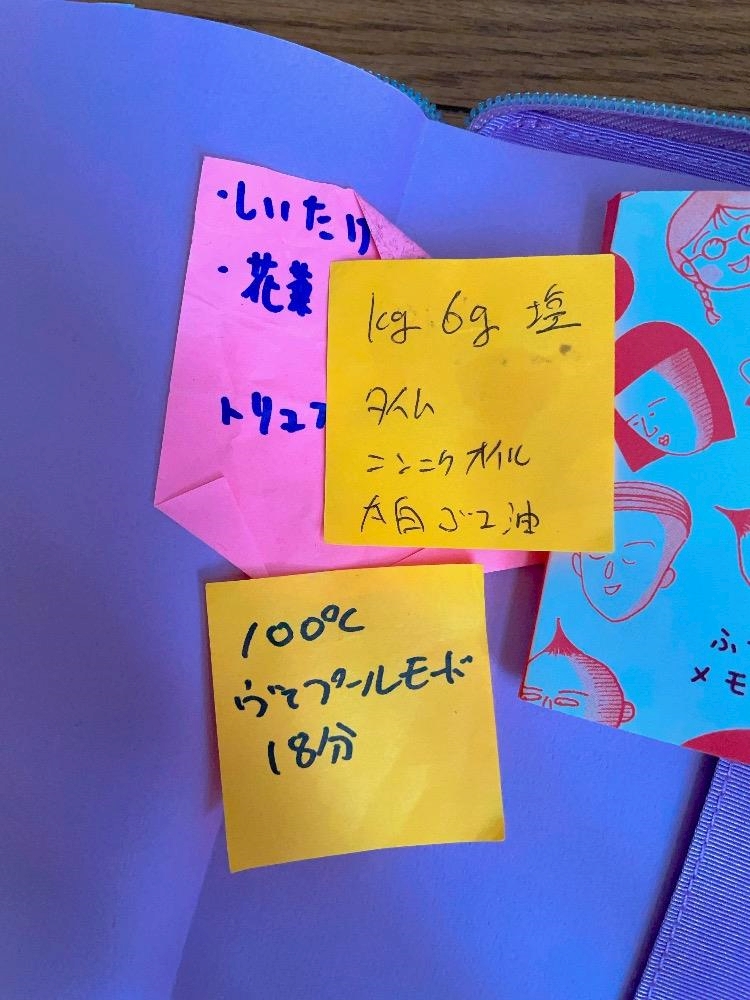 ・しいたけ
・花薫
トリュフ
1kg 6g 塩
タイム
ニンニクオイル
太白ごま油
100℃
ヴァプールモード
18分
ふ
メモ